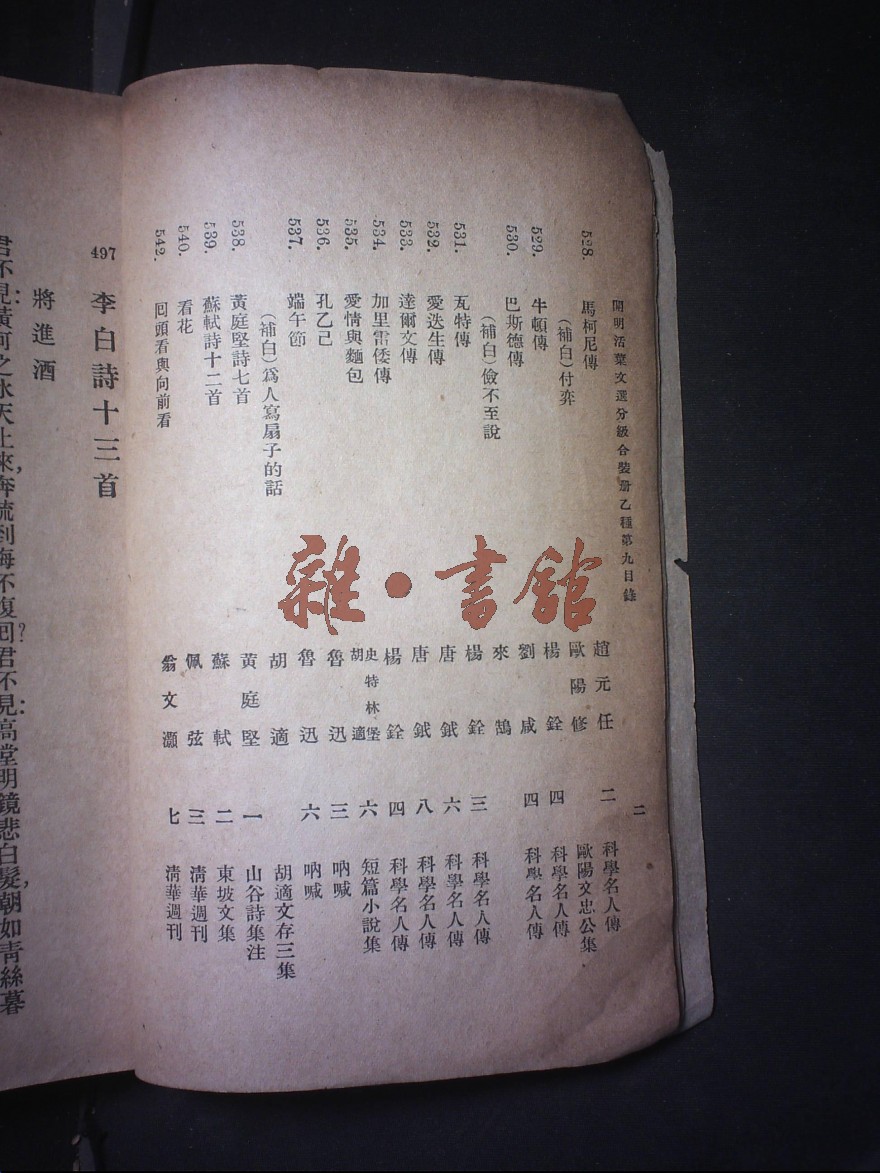 開明活葉文選分級合裝册乙種第九目錄 二
528. 馬柯尼傳 趙元任 二 科學名人傳
(補白)付弈 歐陽修 歐陽文忠公集
529. 牛頓傳 楊銓 四 科學名人傳
530. 巴斯德傳 劉咸 四 科學名人傳
(補白)儉不至說 來鵠
531. 瓦特傳 楊銓 三 科學名人傳
532. 愛迭生傳 唐鉞 六 科學名人傳
533. 達爾文傳 唐鉞 八 科學名人傳
534. 加里雷倭傳 楊銓 四 科學名人傳
535. 愛情與麵包 史特林堡 胡適 六 短篇小說集
536. 孔乙己 魯迅 三 吶喊
537. 端午節 魯迅 六 吶喊
(補白)爲人寫扇子的話 胡適 胡適文存三集
538. 黃庭堅詩七首 黃庭堅 一 山谷詩集注
539. 蘇軾詩十二首 蘇軾 二 東坡文集
540. 看花 佩弦 三 清華週刊
542. 回頭看與向前看 翁文灝 七 清華週刊
497 李白詩十三首
將進酒
君不見：黃河之水天上來，奔流到海不復回？君不見：高堂明鏡悲白髮，朝如青絲暮
雜·書館